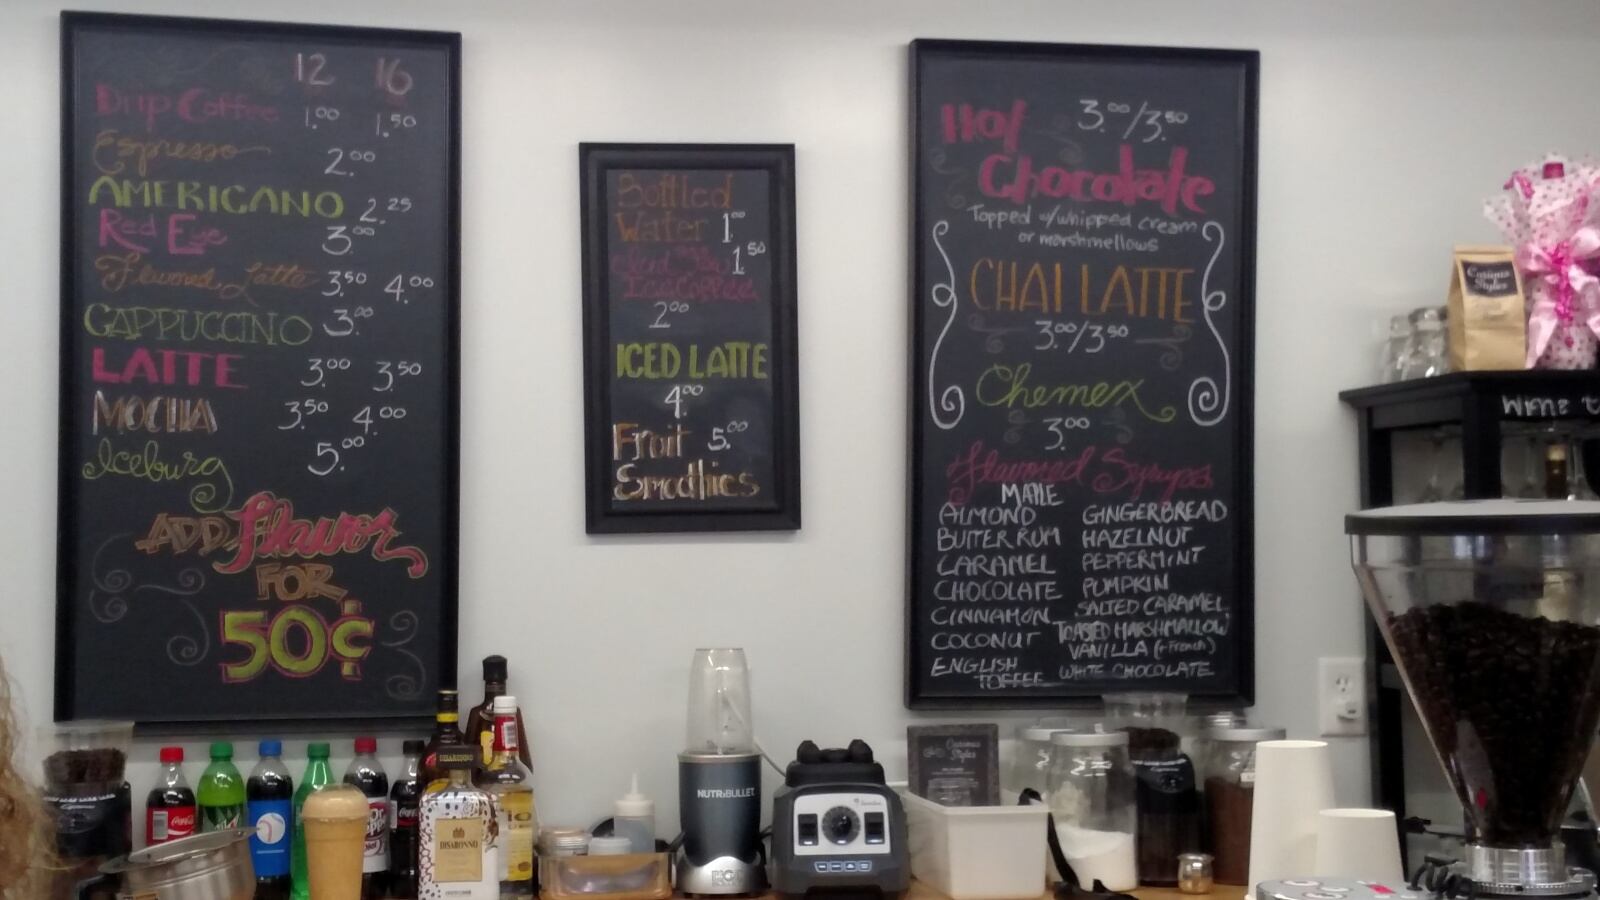 12 16
Drip Coffee 1.00 1.50
Espresso 2.00
AMERICANO 2.25
Red Eye 3.00
Flavored Latte 3.50 4.00
CAPPUCCINO 3.00
LATTE 3.00 3.50
MOCHA 3.50 4.00
Iceburg 5.00
ADD Flavor
FOR
50¢
Bottled
Water 1.00
Iced Tea 1.50
Ice Coffee
2.00
ICED LATTE
4.00
Fruit 5.00
Smoothies
Hot 3.00/3.50
Chocolate
Topped w/whipped cream
or marshmellows
CHAI LATTE
3.00/3.50
Chemex
3.00
Flavored Syrups
MAPLE
ALMOND GINGERBREAD
BUTTER RUM HAZELNUT
CARAMEL PEPPERMINT
CHOCOLATE PUMPKIN
CINNAMON SALTED CARAMEL
COCONUT TOASTED MARSHMALLOW
VANILLA (+French)
ENGLISH WHITE CHOCOLATE
TOFFEE
Curious
Styles
Wine
Curious
Styles
NUTRiBULLET.
DISARONNO
Coca-Cola